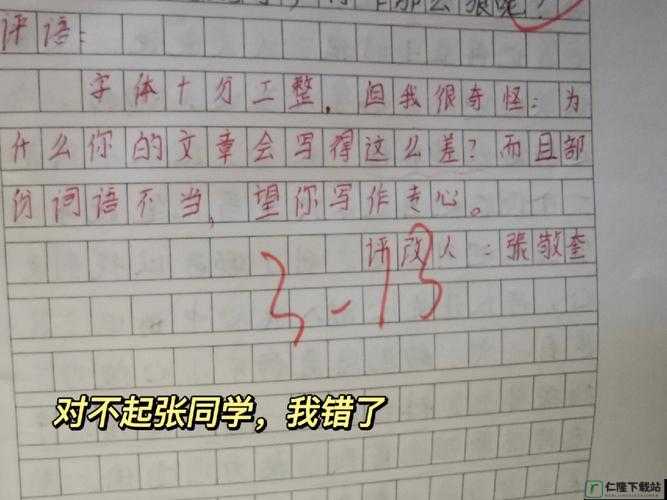 评语：
字体十分工整，但我很奇怪：为
什么你的文章会写得这么差？而且部
份词语不当，望你写作专心。
评改人：张敬奎
3-13
对不起张同学，我错了
仁隆下载站